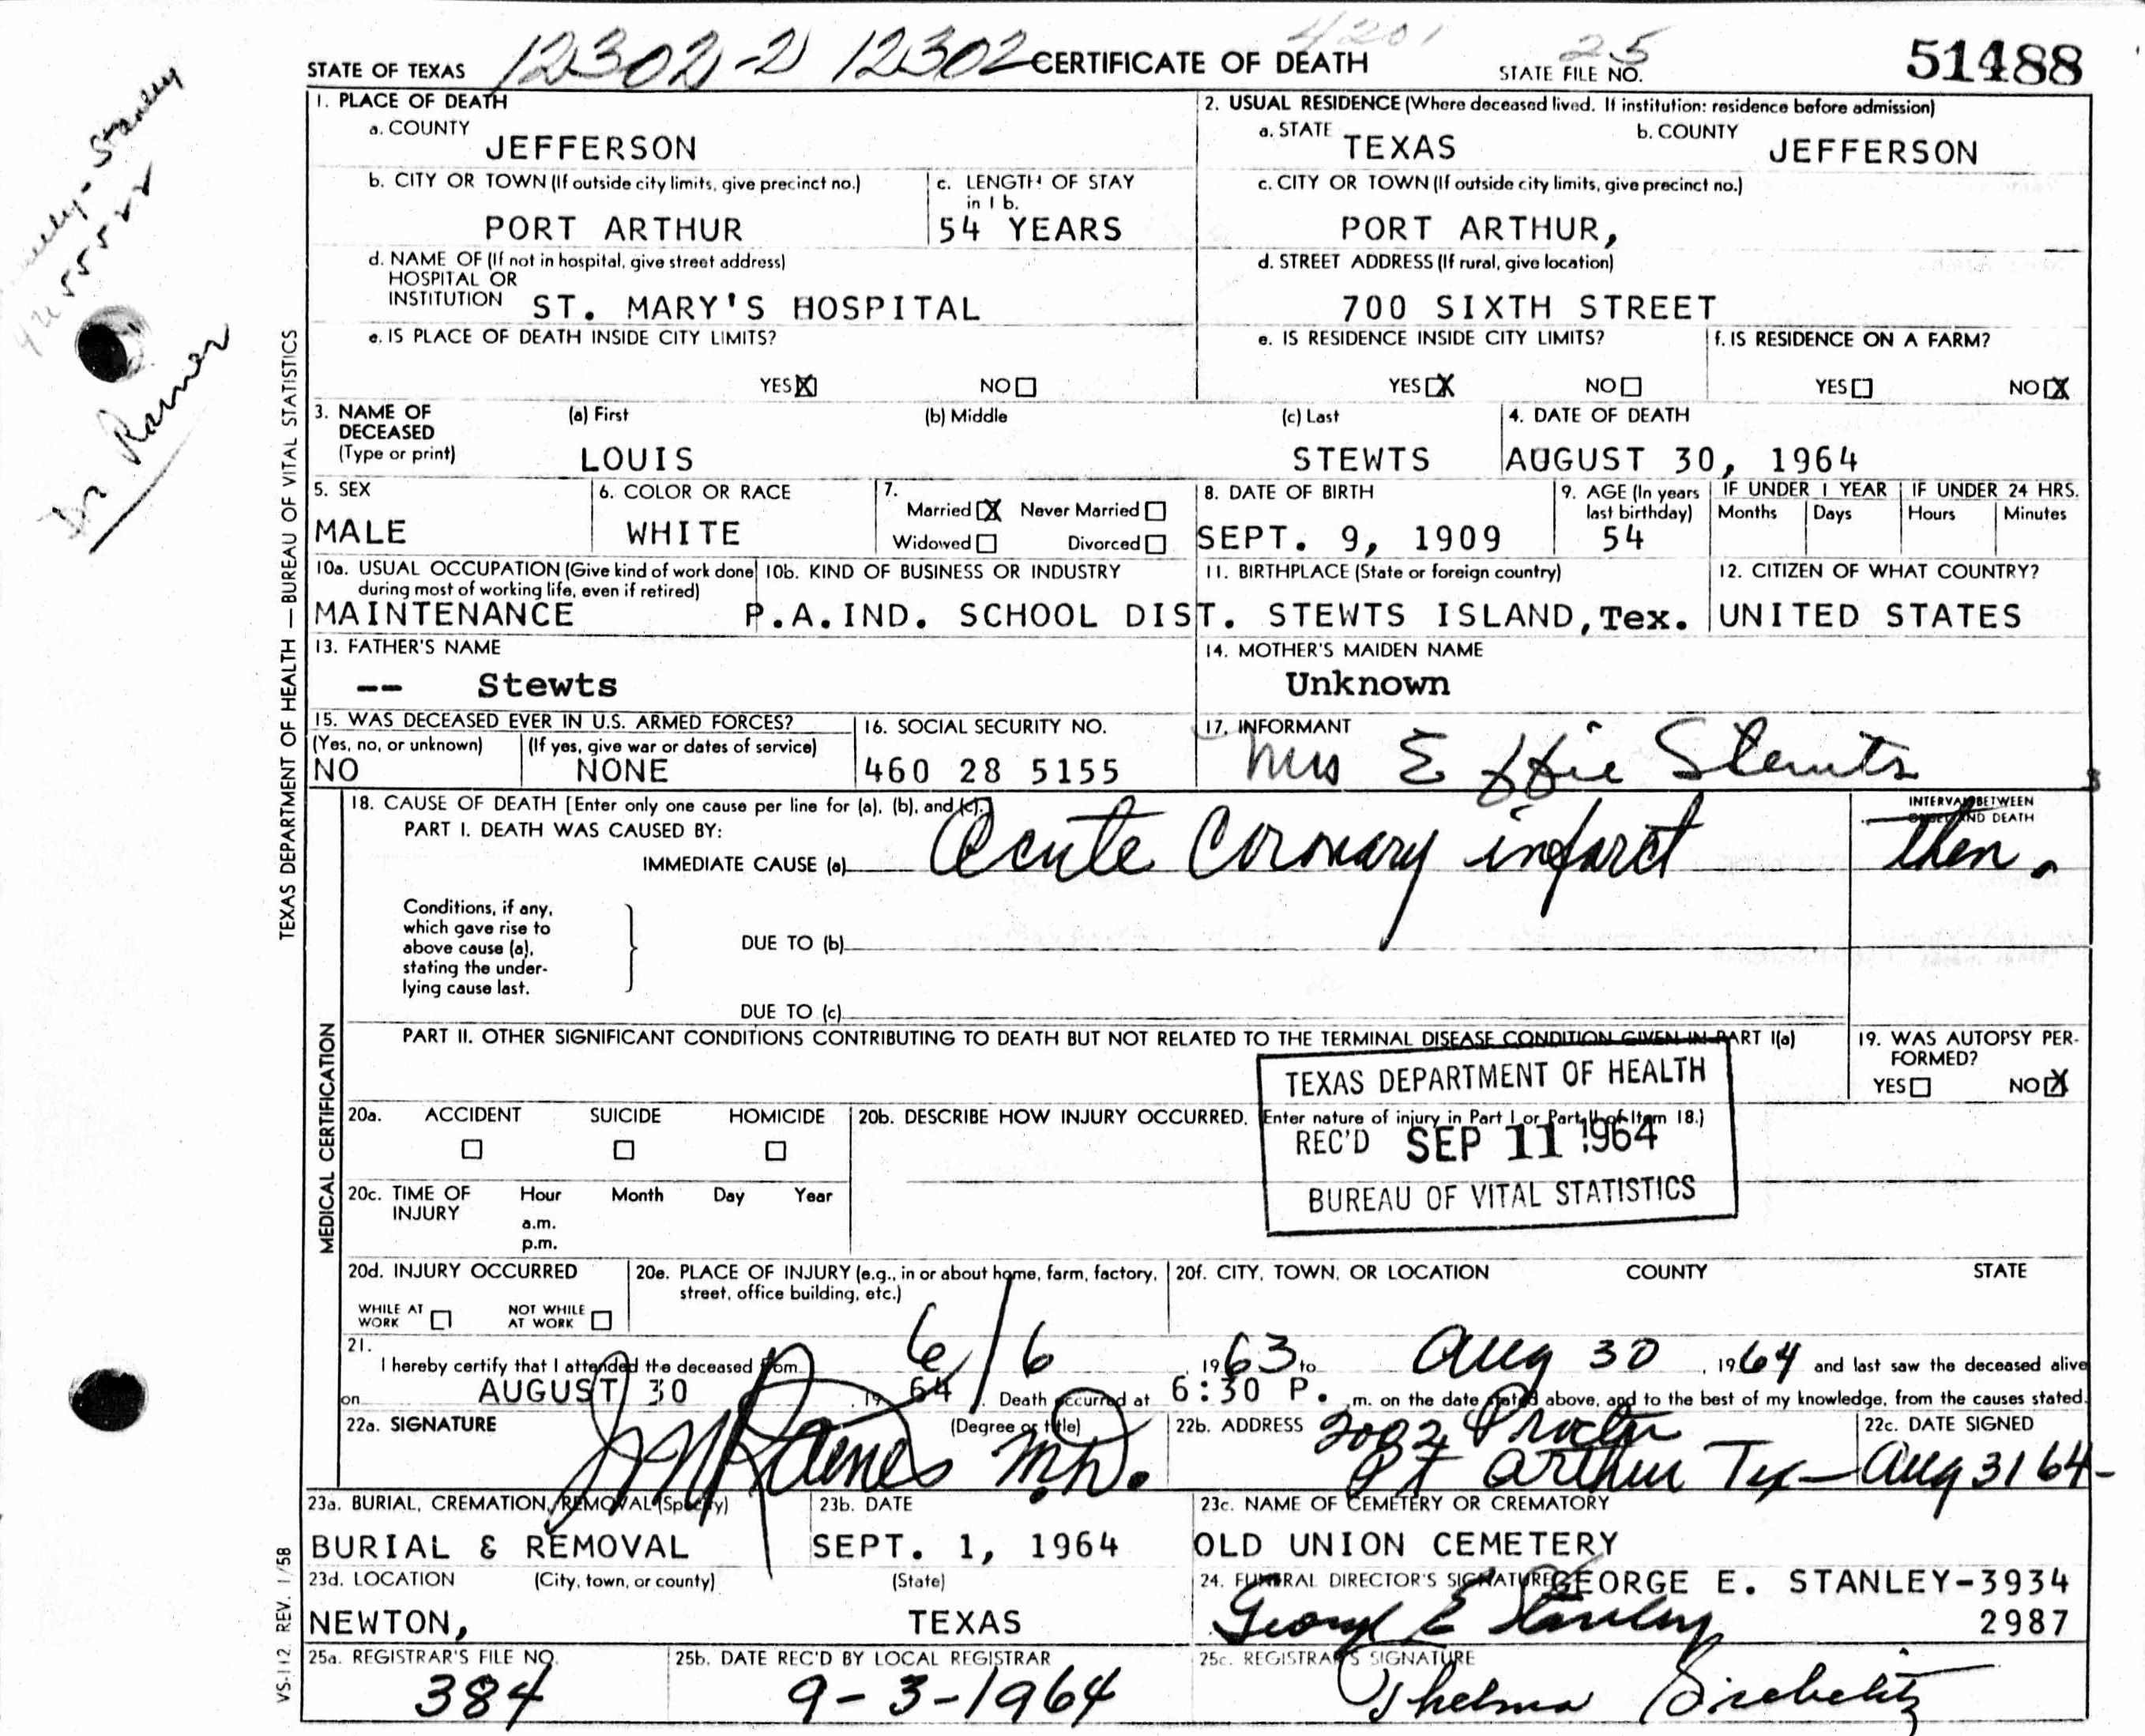 STATE OF TEXAS 12302-2 12302 CERTIFICATE OF DEATH 4201 STATE FILE NO. 25 51488
1. PLACE OF DEATH
a. COUNTY JEFFERSON
2. USUAL RESIDENCE (Where deceased lived. If institution: residence before admission)
a. STATE TEXAS b. COUNTY JEFFERSON
b. CITY OR TOWN (If outside city limits, give precinct no.) PORT ARTHUR
c. LENGTH OF STAY in 1 b. 54 YEARS
c. CITY OR TOWN (If outside city limits, give precinct no.) PORT ARTHUR,
d. NAME OF (If not in hospital, give street address)
HOSPITAL OR
INSTITUTION ST. MARY'S HOSPITAL
d. STREET ADDRESS (If rural, give location)
700 SIXTH STREET
e. IS PLACE OF DEATH INSIDE CITY LIMITS?
YES X NO
e. IS RESIDENCE INSIDE CITY LIMITS?
YES X NO
f. IS RESIDENCE ON A FARM?
YES NO X
3. NAME OF DECEASED (Type or print)
(a) First LOUIS (b) Middle (c) Last STEWTS
4. DATE OF DEATH
AUGUST 30, 1964
5. SEX
MALE
6. COLOR OR RACE
WHITE
7. Married X Never Married
Widowed Divorced
8. DATE OF BIRTH
SEPT. 9, 1909
9. AGE (In years last birthday)
54
IF UNDER 1 YEAR
Months Days
IF UNDER 24 HRS.
Hours Minutes
10a. USUAL OCCUPATION (Give kind of work done
during most of working life, even if retired)
MAINTENANCE
10b. KIND OF BUSINESS OR INDUSTRY
P.A.IND. SCHOOL DIST.
11. BIRTHPLACE (State or foreign country)
STEWTS ISLAND, Tex.
12. CITIZEN OF WHAT COUNTRY?
UNITED STATES
13. FATHER'S NAME
-- Stewts
14. MOTHER'S MAIDEN NAME
Unknown
15. WAS DECEASED EVER IN U.S. ARMED FORCES?
(Yes, no, or unknown) (If yes, give war or dates of service)
NO NONE
16. SOCIAL SECURITY NO.
460 28 5155
17. INFORMANT
Mrs Effie Stewts
18. CAUSE OF DEATH [Enter only one cause per line for (a), (b), and (c).]
PART I. DEATH WAS CAUSED BY:
IMMEDIATE CAUSE (a) Acute Coronary infarct
INTERVAL BETWEEN
ONSET AND DEATH
then.
Conditions, if any,
which gave rise to
above cause (a),
stating the under-
lying cause last.
DUE TO (b)
DUE TO (c)
PART II. OTHER SIGNIFICANT CONDITIONS CONTRIBUTING TO DEATH BUT NOT RELATED TO THE TERMINAL DISEASE CONDITION GIVEN IN PART I(a)
19. WAS AUTOPSY PER-
FORMED?
YES NO X
TEXAS DEPARTMENT OF HEALTH
REC'D SEP 11 1964
BUREAU OF VITAL STATISTICS
20a. ACCIDENT SUICIDE HOMICIDE
20b. DESCRIBE HOW INJURY OCCURRED. (Enter nature of injury in Part I or Part II of Item 18.)
20c. TIME OF INJURY
Hour Month Day Year
a.m.
p.m.
20d. INJURY OCCURRED
WHILE AT WORK NOT WHILE AT WORK
20e. PLACE OF INJURY (e.g., in or about home, farm, factory,
street, office building, etc.)
20f. CITY, TOWN, OR LOCATION COUNTY STATE
21.
I hereby certify that I attended the deceased from 6/6, 1963 to Aug 30, 1964 and last saw the deceased alive
on AUGUST 30, 19 64. Death occurred at 6:30 P. m. on the date stated above, and to the best of my knowledge, from the causes stated.
22a. SIGNATURE (Degree or title)
M.D.
22b. ADDRESS 2002 Procter
Pt Arthur Tex
22c. DATE SIGNED
Aug 31 64
23a. BURIAL, CREMATION, REMOVAL (Specify)
BURIAL & REMOVAL
23b. DATE
SEPT. 1, 1964
23c. NAME OF CEMETERY OR CREMATORY
OLD UNION CEMETERY
23d. LOCATION (City, town, or county) (State)
NEWTON, TEXAS
24. FUNERAL DIRECTOR'S SIGNATURE GEORGE E. STANLEY-3934
George E Stanley 2987
25a. REGISTRAR'S FILE NO.
384
25b. DATE REC'D BY LOCAL REGISTRAR
9-3-1964
25c. REGISTRAR'S SIGNATURE
Thelma
TEXAS DEPARTMENT OF HEALTH — BUREAU OF VITAL STATISTICS
MEDICAL CERTIFICATION
VS-112 REV. 1/58
Stanley
Dr